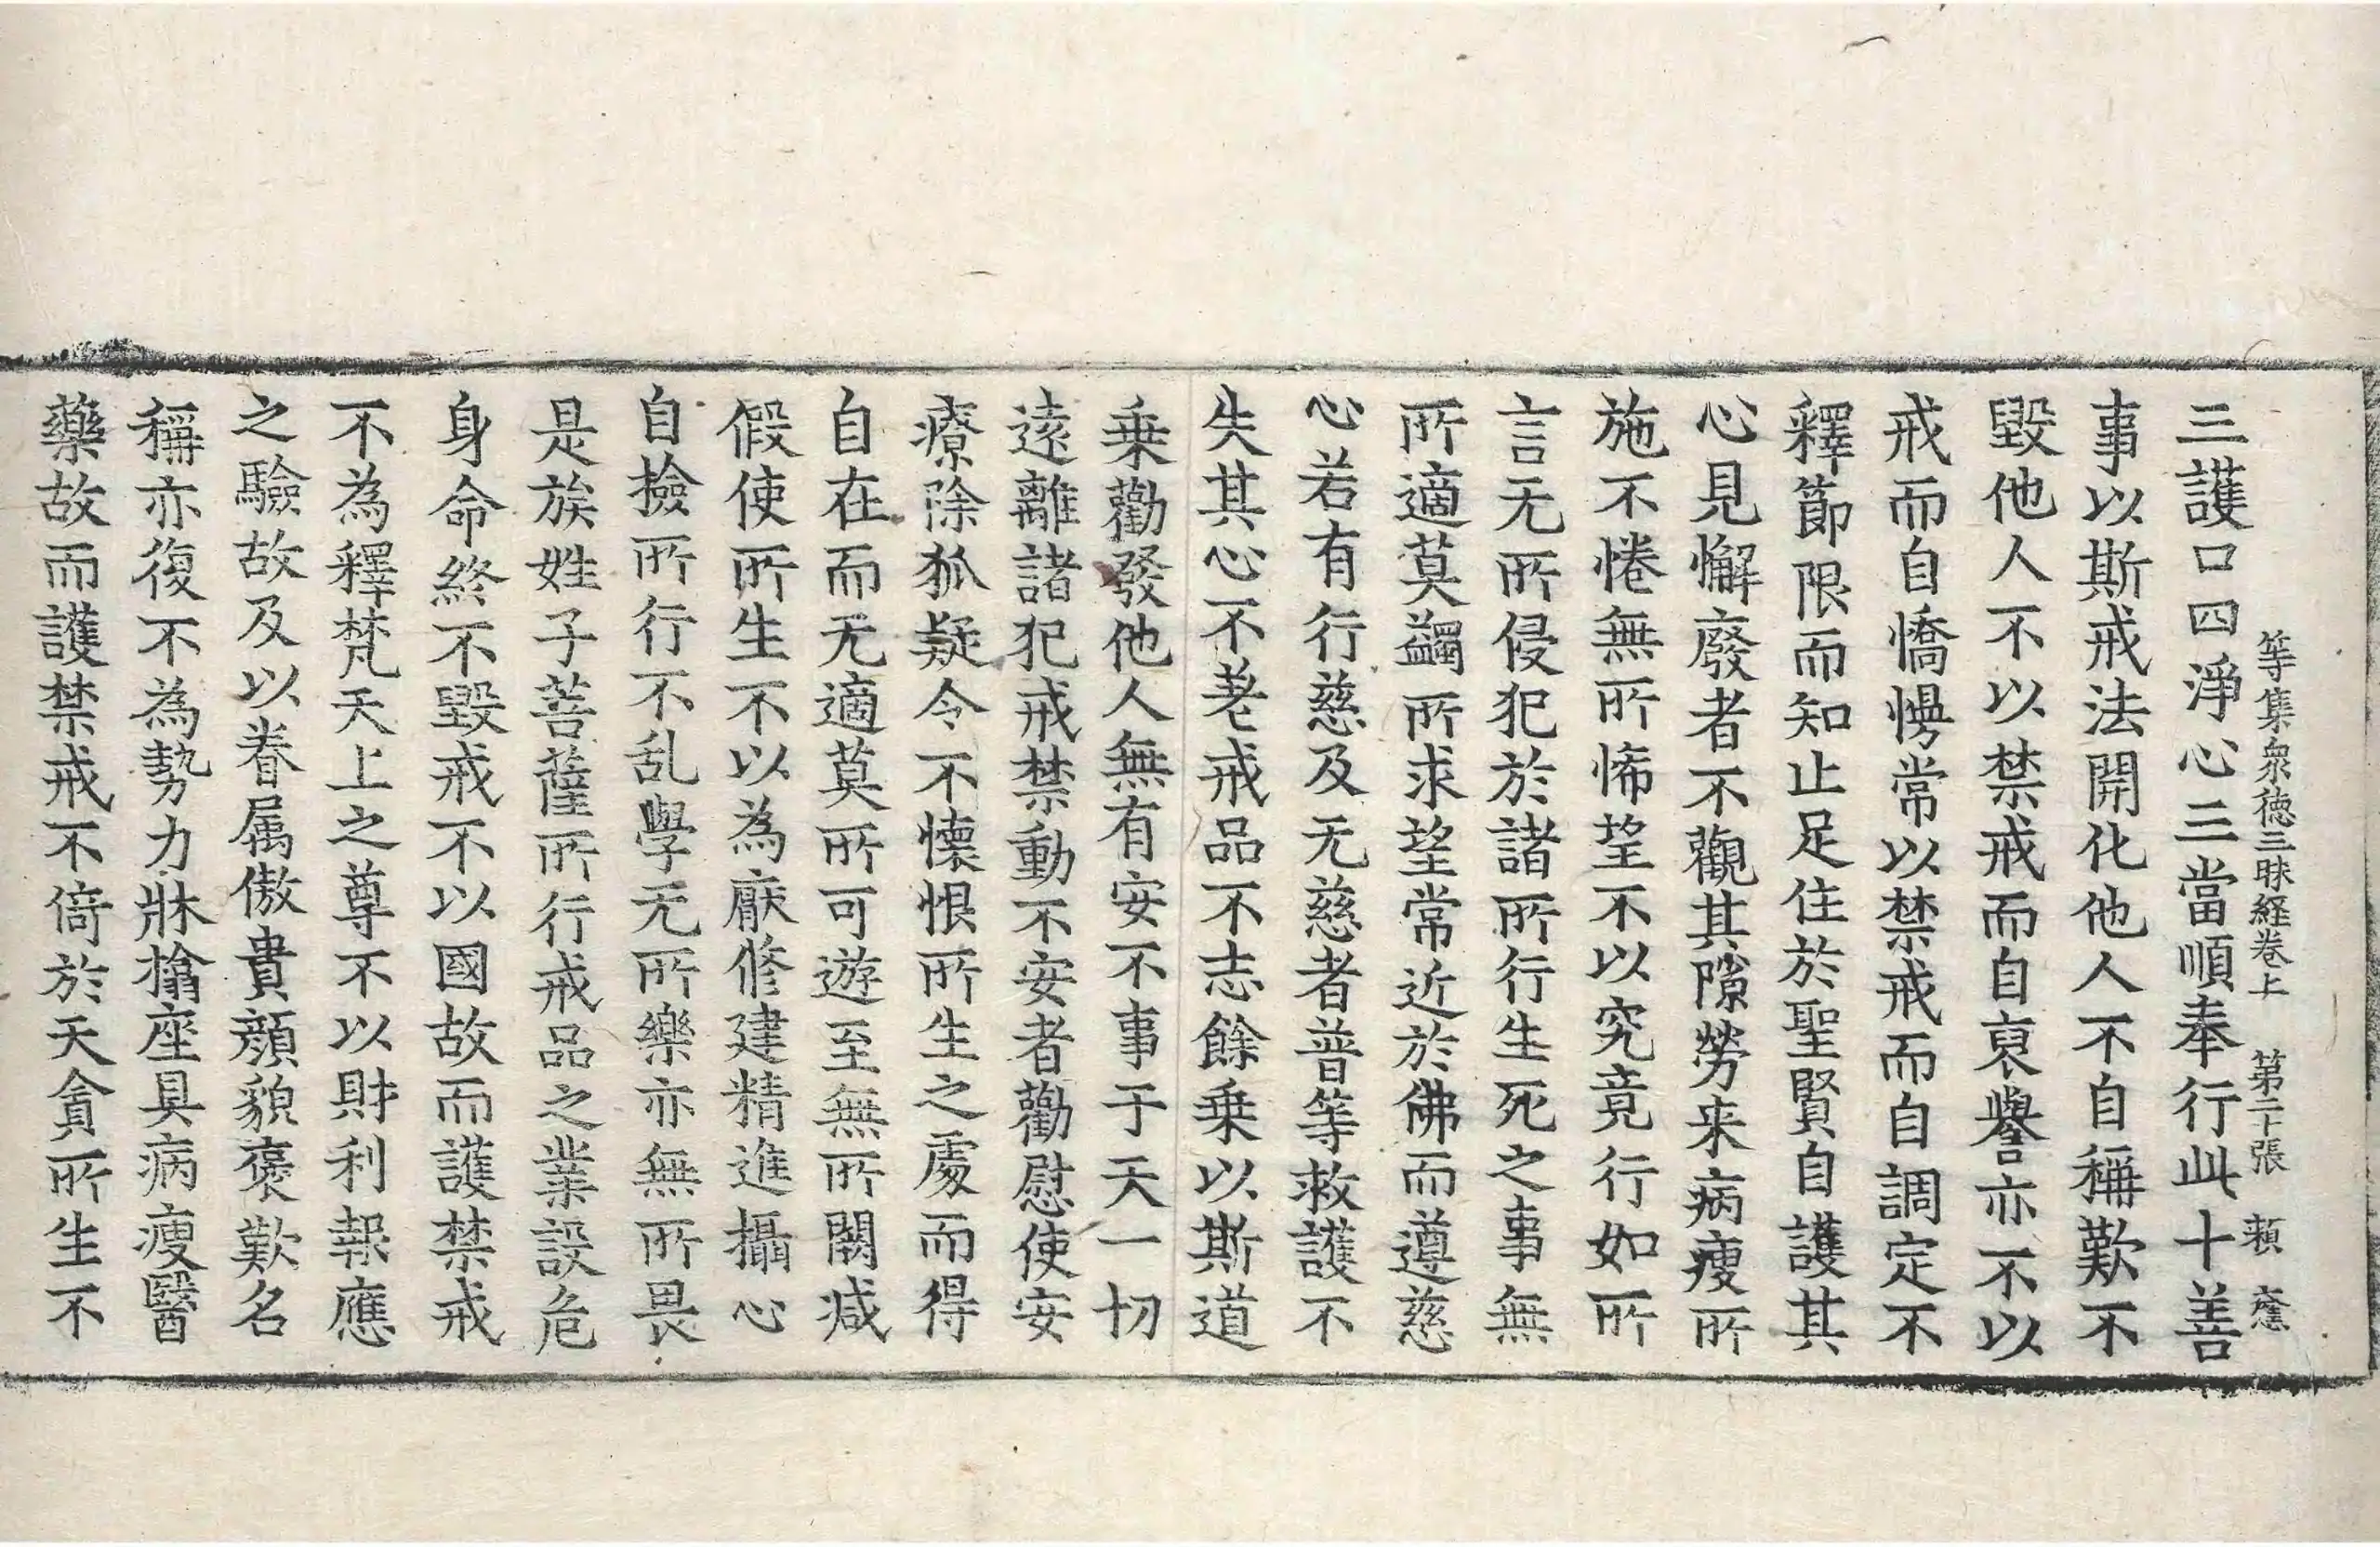 等集衆徳三昧経卷上 第二十張 頼 㢝
三護口四淨心三當順奉行此十善
事以斯戒法開化他人不自稱歎不
毀他人不以禁戒而自裒譽亦不以
戒而自憍慢常以禁戒而自調定不
釋節限而知止足住於聖賢自護其
心見懈廢者不觀其隙勞来病瘦所
施不惓無所悕望不以究竟行如所
言无所侵犯於諸所行生死之事無
所適莫蠲所求望常近於佛而遵慈
心若有行慈及无慈者普等救護不
失其心不荖戒品不志餘乗以斯道
乗勸發他人無有安不事于天一切
逺離諸犯戒禁動不安者勸慰使安
療除狐疑令不懐恨所生之處而得
自在而无適莫所可遊至無所闕减
假使所生不以為厭修建精進攝心
自撿所行不乱學无所樂亦無所畏
是族姓子菩薩所行戒品之業設危
身命終不毀戒不以國故而護禁戒
不為釋梵天上之尊不以財利報應
之驗故及以眷属傲貴顔貌褒歎名
稱亦復不為勢力牀㯓座具病瘦醫
藥故而護禁戒不倚於天貪所生不